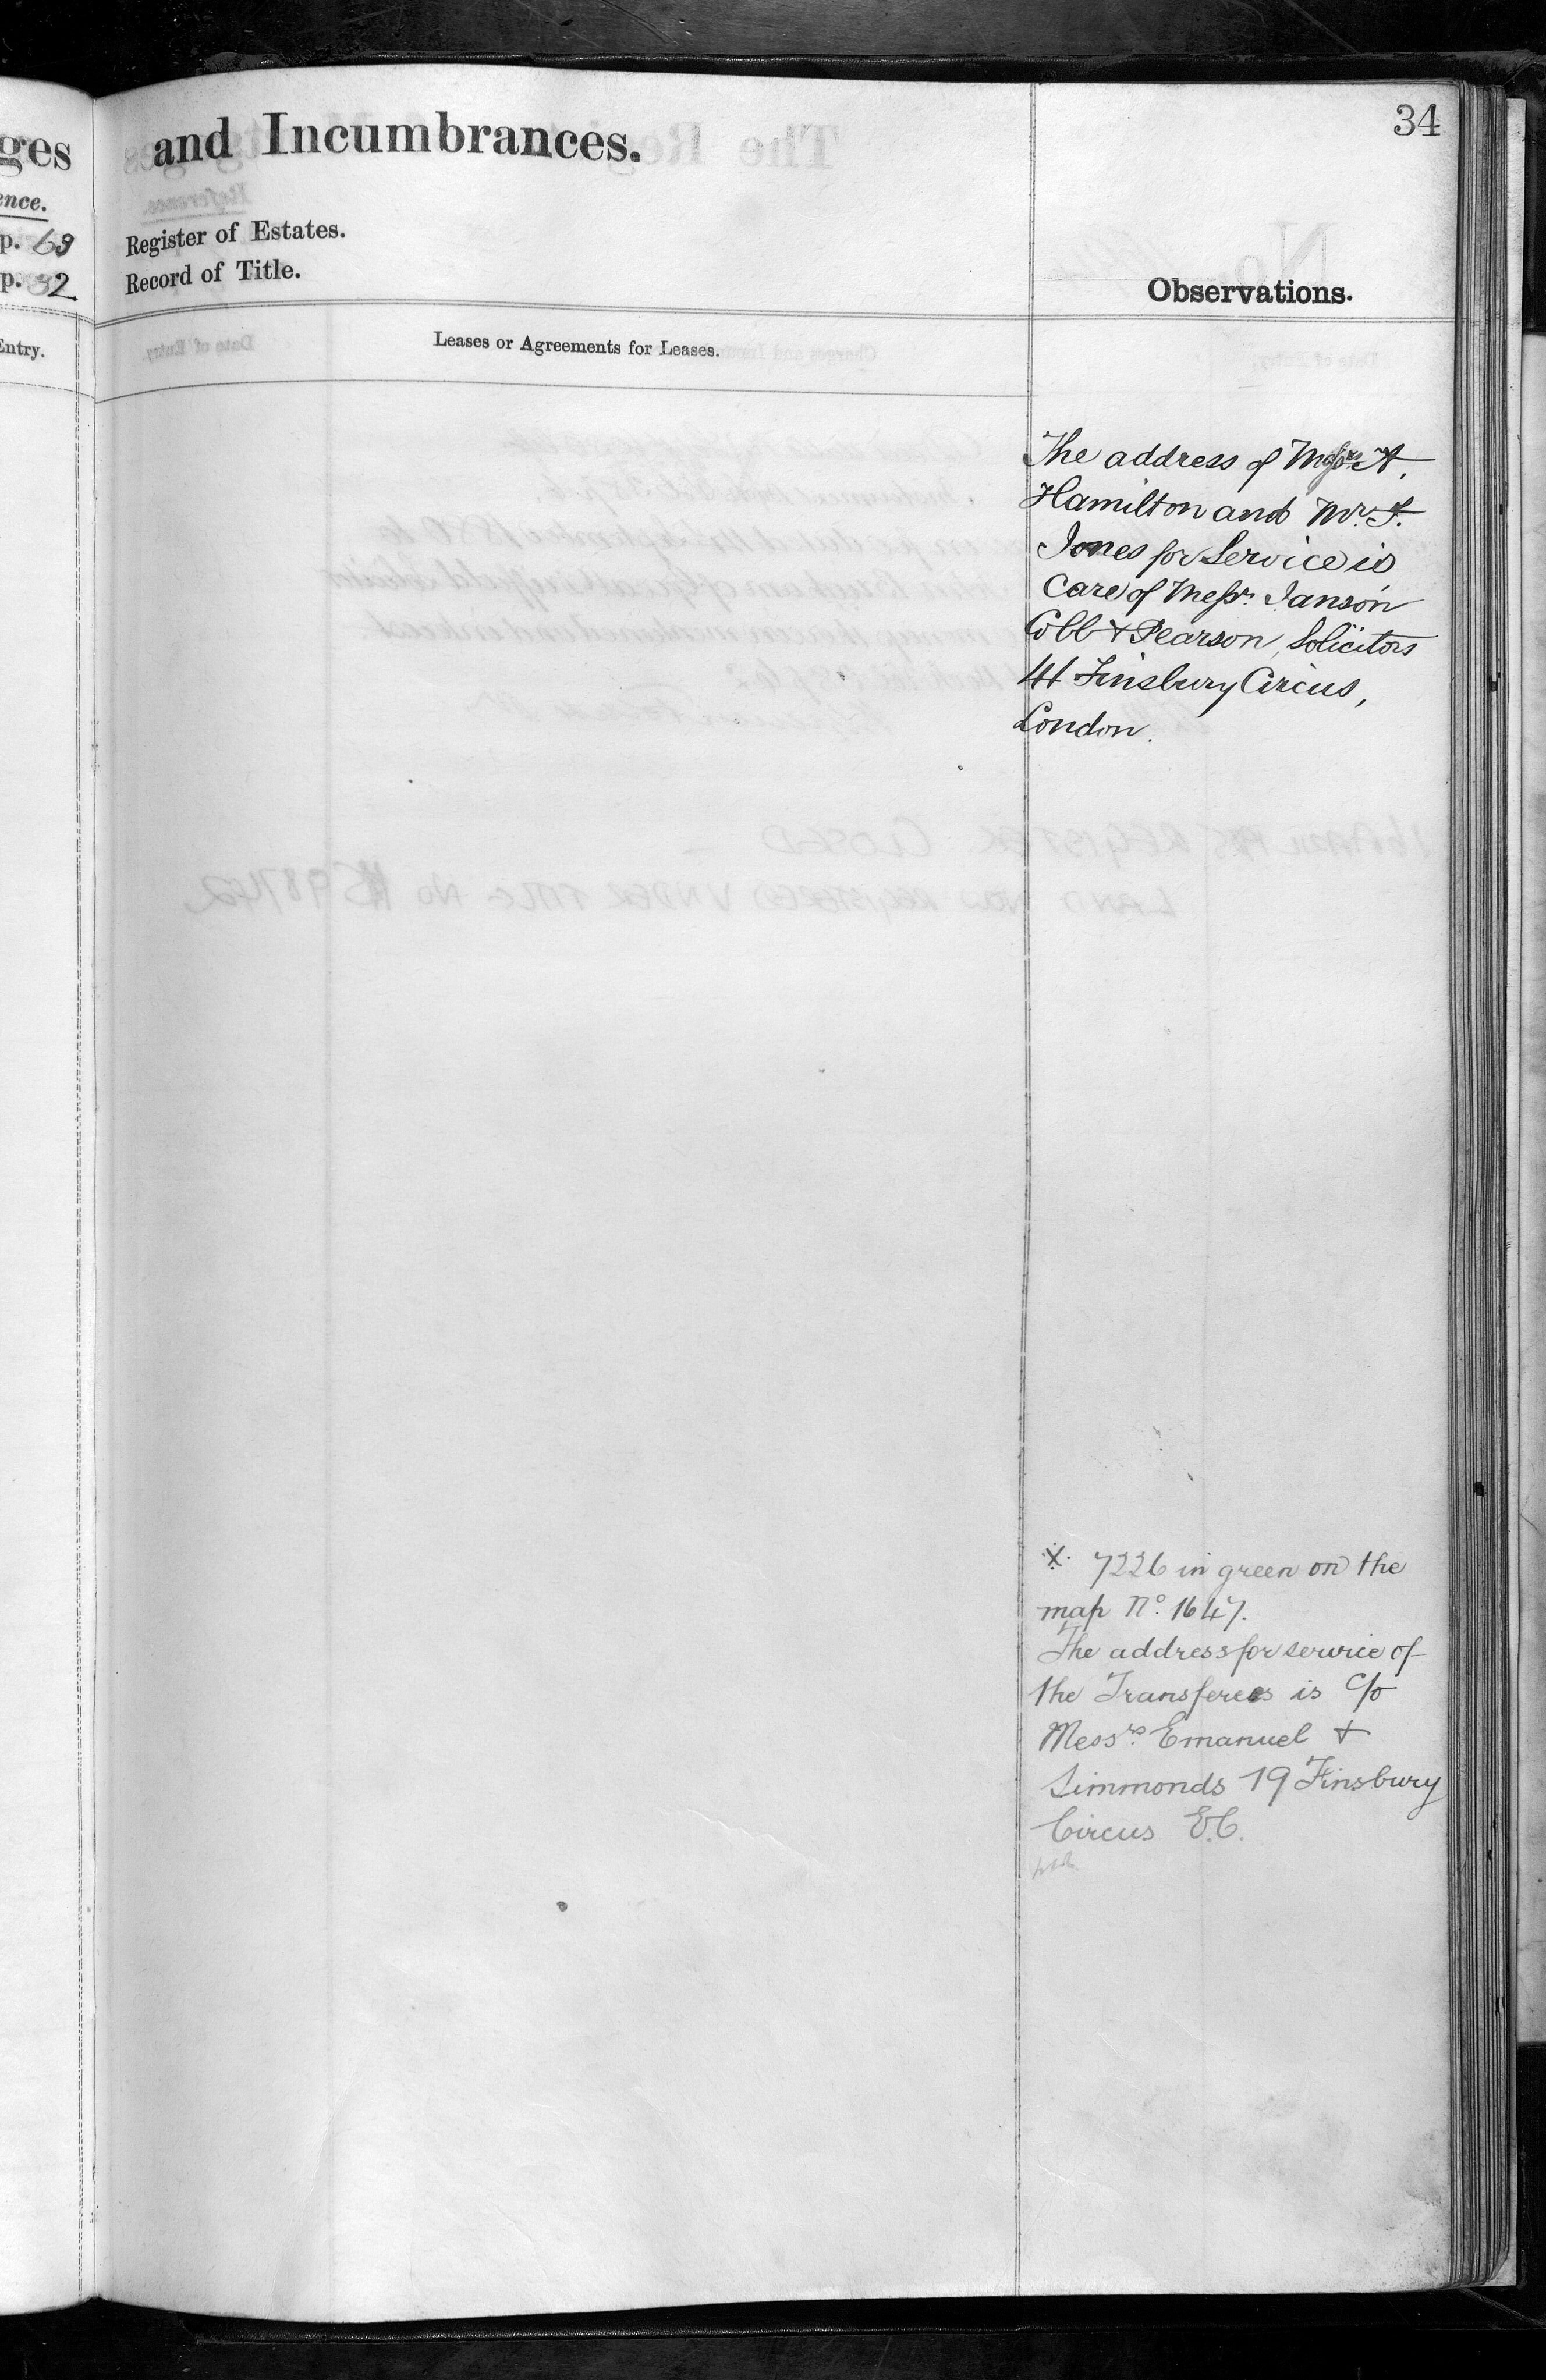 34
ges
and Incumbrances.
ence.
p. 69
Register of Estates.
p. 32
Record of Title.
Observations.
Entry.
Leases or Agreements for Leases.
The address of Messrs A.
Hamilton and Mr. T.
Jones for Service is
Care of Messrs. Janson
Cobb & Pearson, Solicitors
41 Finsbury Circus,
London.
X 7226 in green on the
map No. 1647.
The address for service of
the Transferees is c/o
Messrs. Emanuel &
Simmonds 19 Finsbury
Circus E.C.